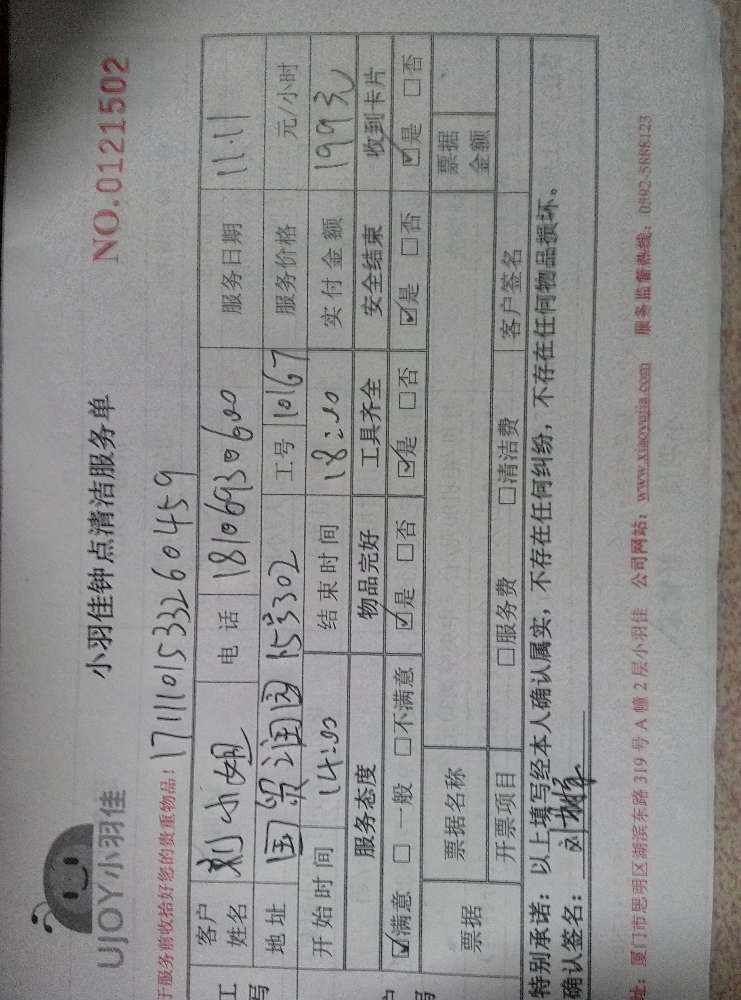 UJOY小羽佳
小羽佳钟点清洁服务单
NO.0121502
于服务前收拾好您的贵重物品！
1711101533260459
客户姓名 刘小姐 电话 18106930600 服务日期 11.11
地址 国贸润园 15#3302 工号 10167 服务价格 元/小时
开始时间 14:00 结束时间 18:00 实付金额 199元
服务态度 物品完好 工具齐全 安全结束 收到卡片
☑满意 □一般 □不满意 ☑是 □否 ☑是 □否 ☑是 □否 ☑是 □否
票据 票据名称 票据金额
开票项目 □服务费 □清洁费 客户签名
特别承诺：以上填写经本人确认属实，不存在任何纠纷，不存在任何物品损坏。
确认签名：
址：厦门市思明区湖滨东路319号A幢2层小羽佳 公司网站：www.xiaoyujia.com 服务监督热线：0592-5888123